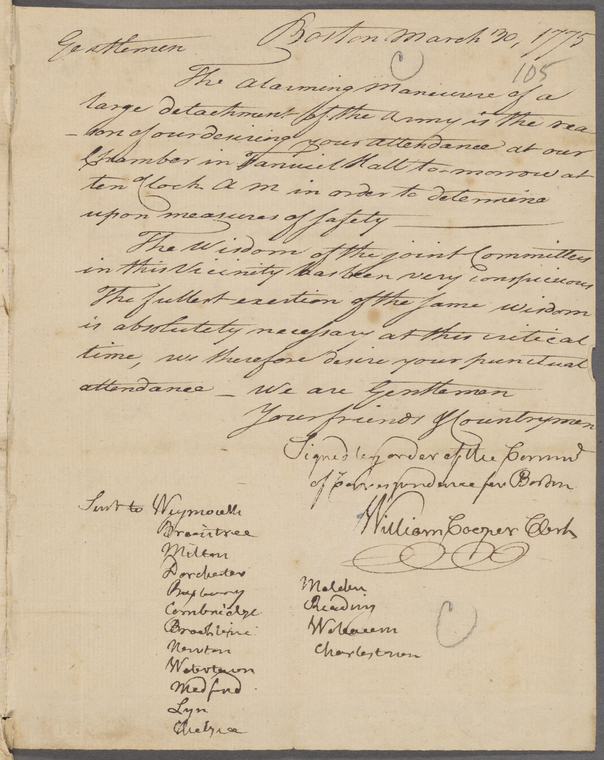 Boston March 30, 1775
Gentlemen
105
The alarming Maneuvre of a
large detachment of the Army is the rea
-son of our desiring your attendance at our
Chamber in Fanuiel Hall to-morrow at
ten oClock A M in order to determine
upon measures of safety
The Wisdom of the joint Committees
in this Vicinity has been very conspicuous
The fullest exertion of the same wisdom
is absolutely necessary at this critical
time, we therefore desire your punctual
attendance _ We are Gentlemen
Your friends & Countrymen
Signed by order of the Commee
of Correspondence for Boston
William Cooper Clerk
Sent to Weymouth
Braintree
Milton
Dorchester
Roxbury
Cambridge
Brookline
Newton
Watertown
Medford
Lyn
Chelsea
Malden
Reading
Woburn
Charlestown